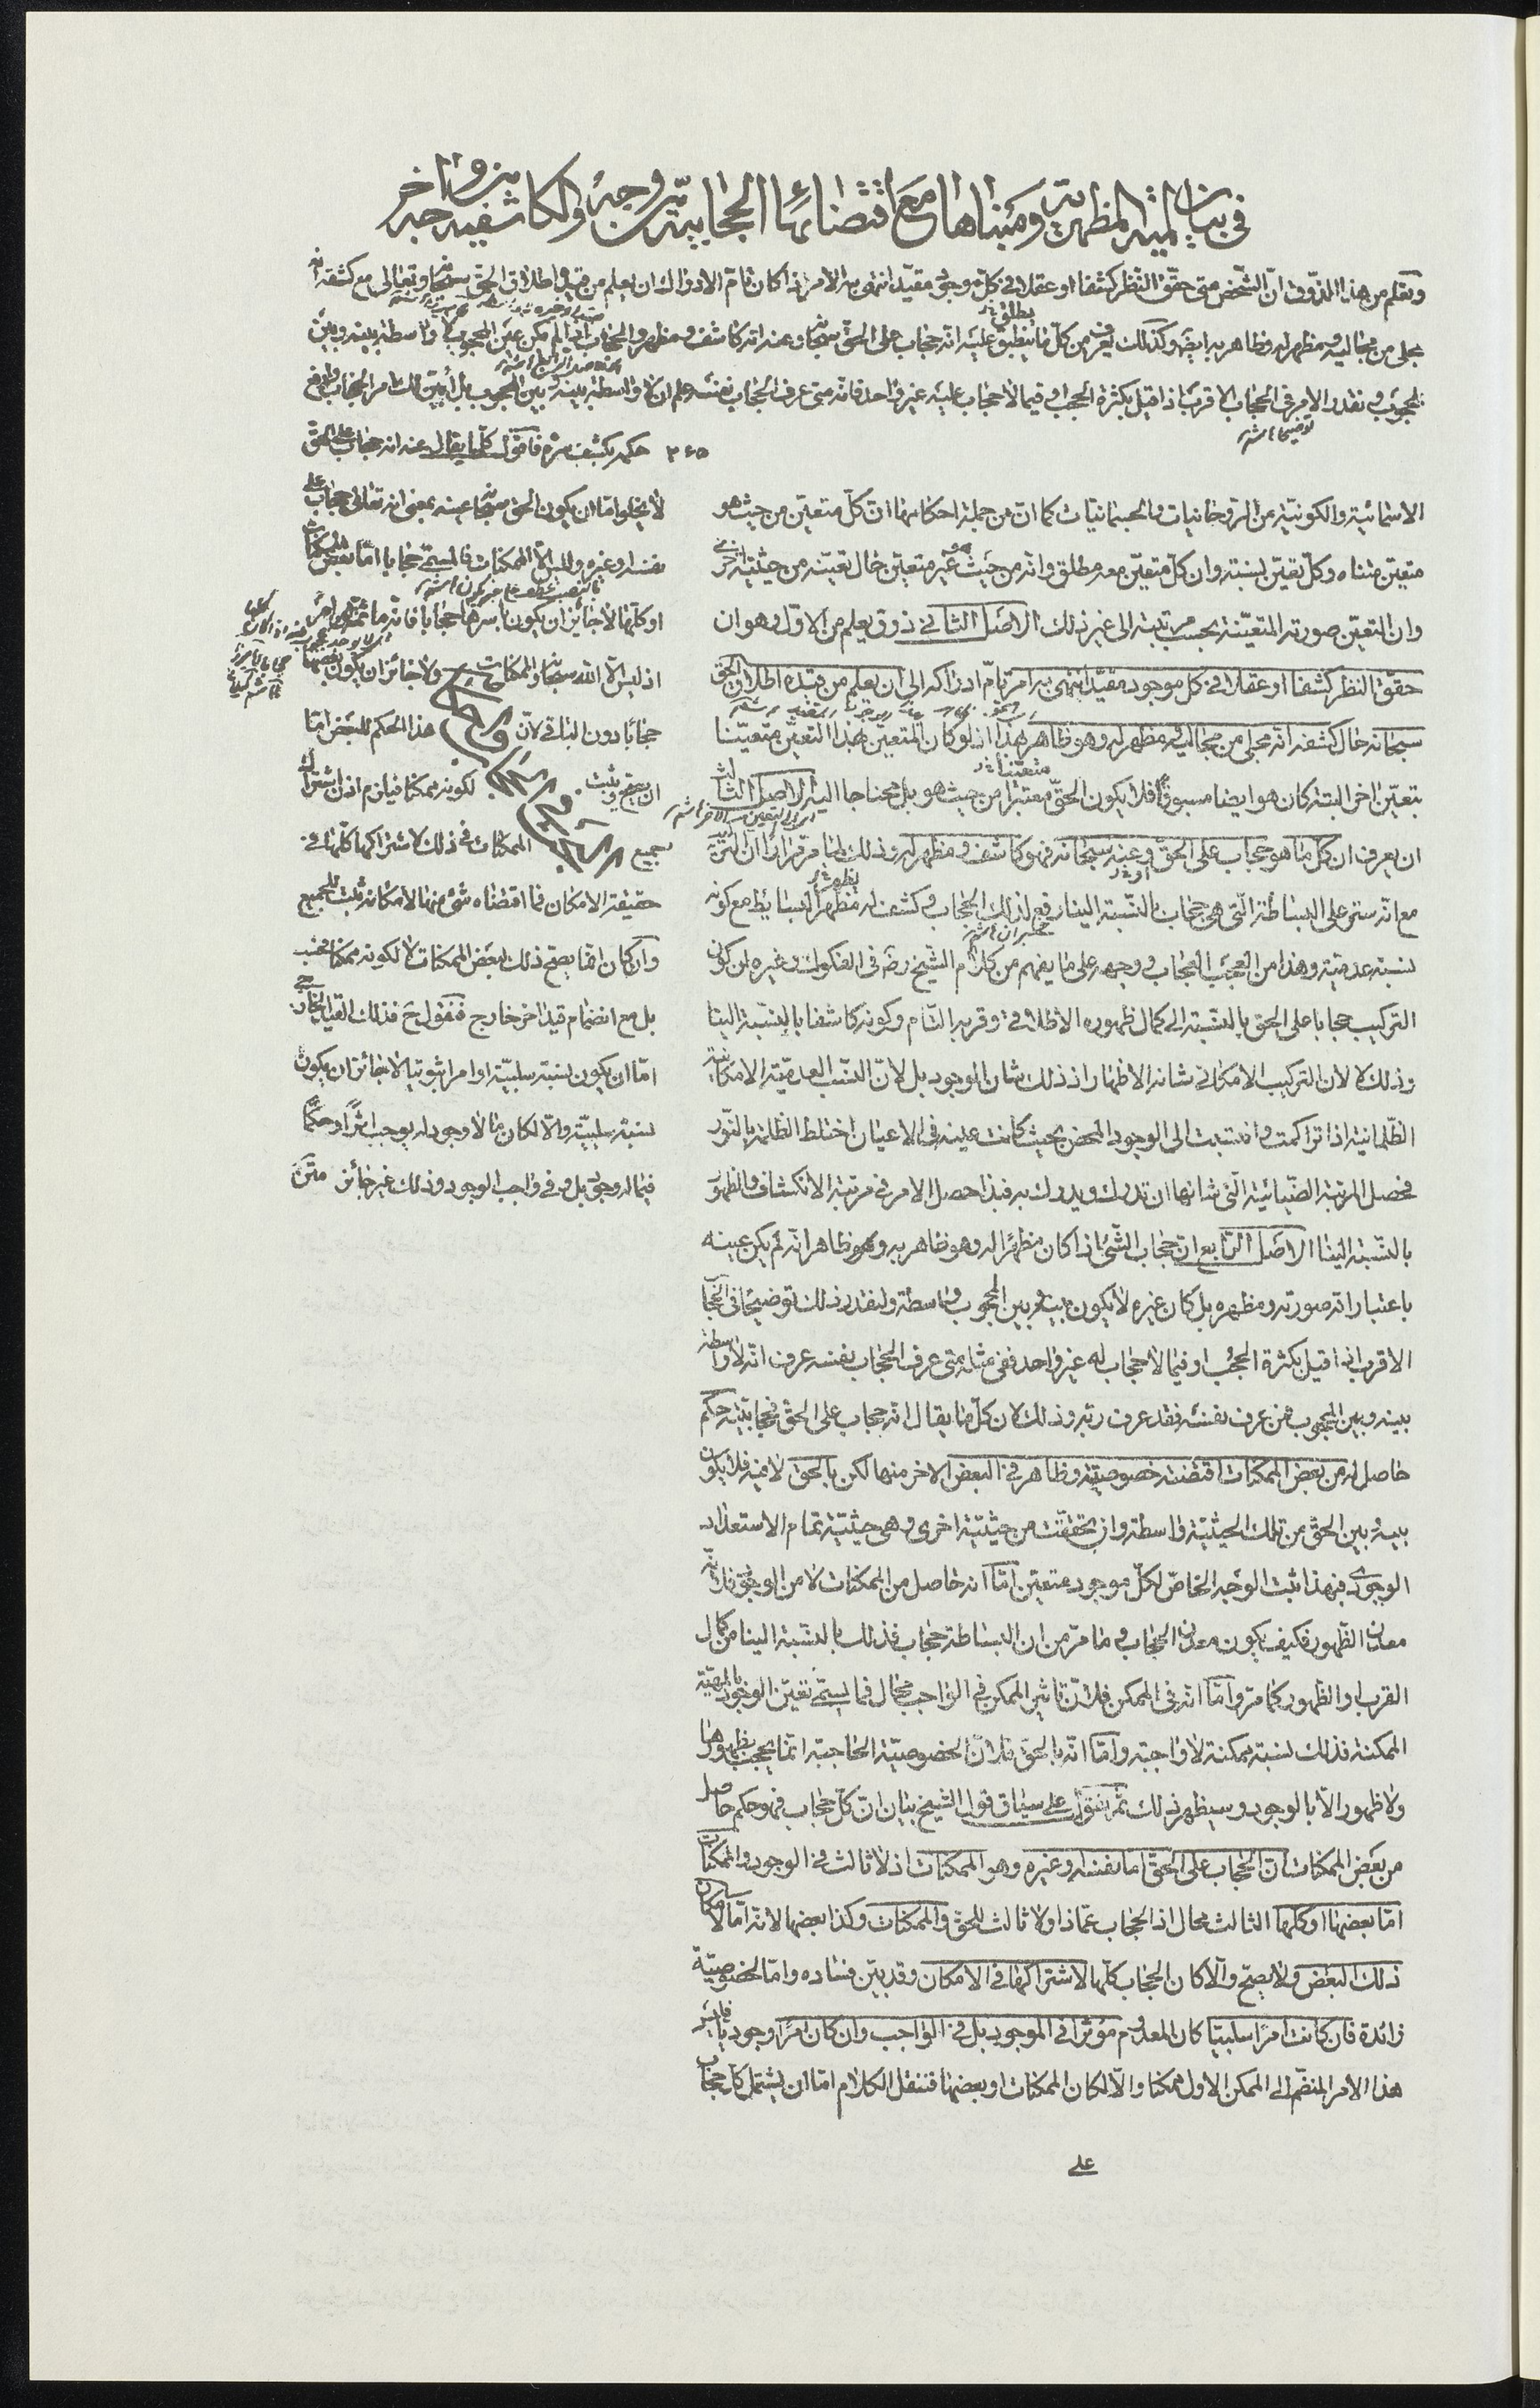 في بيان لمية المظهرية ومبناها مع اقتضائها الحجابية من وجه والكاشفية من وجه اخر
وتعلم من هذا الذوق ان الشخص متى حقق النظر كشفا او عقلا في كل موجود مقيد انتهى به الامر اذا كان تام الادراك ان يعلم من قيده اطلاق الحق سبحانه وتعالى مع كشفه انه
مجلى من مجاليه ومظهر له وظاهر به ايضا وكذلك يعرف من كل ما ينطبق عليه انه حجاب على الحق سبحانه وعنه انه كاشف ومظهر والحجاب اذا لم يكن عين المحجوب لا واسطة بينه وبين
المحجوب ونقدر الامر في الحجاب الاقرب اذا قيل بكثرة الحجب وفيما لا حجاب عليه غير واحد فانه متى عرف الحجاب نفسه علم ان لا واسطة بينه وبين المحجوب بل ابين لك امر الحجاب وارفع
توضيحا
٣٤٥ حكمه بكشف سره فاقول كل ما يقال عنه انه حجاب على الحق
الاسمائية والكونية من الروحانيات والجسمانيات كما ان من جملة احكامها ان كل متعين من حيث هو
متعين متناه وكل تعين نسبته وان كل متعين معه مطلق وانه من حيث هو غير متعين حال تعينه من حيثية اخرى
وان التعين صورته المتعينة بحسب مرتبته الى غير ذلك الاصل الثاني ذوق يعلم من الاول وهو ان
حقق النظر كشفا او عقلا في كل موجود مقيد انتهى به امر تام ادراكه الى ان يعلم من قيده اطلاق الحق
سبحانه حال كشفه انه مجلى من مجاليه ومظهر له وهو ظاهر بهذا اذ لو كان المتعين بهذا التعين متعينا
بتعين اخر البتة كان هو ايضا مسبوقا فلا يكون الحق معتبرا من حيث هو بل محتاجا اليه الاصل الثالث
ان يعرف ان كل ما هو حجاب على الحق وعنه سبحانه فهو كاشف ومظهر له وذلك لما مر مرارا ان التركيب
مع انه ستر على البساطة التي هي حجاب بالنسبة الينا رفع لذلك الحجاب وكشف له مظهر البسائط مع كونه
نسبة عدمية وهذا من العجب العجاب ووجهه على ما يفهم من كلام الشيخ رضه في الفكوك وغيره ان كون
التركيب حجابا على الحق بالنسبة الى كمال ظهوره الاطلاقي وقربه التام وكونه كاشفا بالنسبة الينا
وذلك لا لان التركيب الامكاني شانه الاظهار اذ ذلك شان الوجود بل لان النسب العدمية الامكانية
الظلمانية اذا تراكمت وانتسبت الى الوجود المحض بحيث كانت عينه في الاعيان اختلط الظلمة بالنور
فحصل المرتبة الضيائية التي شانها ان تدرك ويدرك به فبذا حصل الامر في مرتبة الانكشاف والظهور
بالنسبة الينا الاصل الرابع ان حجاب الشئ اذا كان مظهرا له وهو ظاهر به وهو ظاهر انه لم يكن عينه
باعتبار انه صورته ومظهره بل كان غيره لا يكون بينه وبين المحجوب واسطة ولنقدر ذلك توضيحا في الحجاب
الاقرب اذا قيل بكثرة الحجب او فيما لا حجاب له غير واحد ففي مثله متى عرف الحجاب بنفسه عرف انه لا واسطة
بينه وبين المحجوب فمن عرف نفسه فقد عرف ربه وذلك لان كل ما يقال انه حجاب على الحق فحجابيته حكم
حاصل له من بعض الممكنات اقتضته خصوصيته وظاهر في البعض الاخر منها لكن بالحق لا منه فلا يكون
بينه وبين الحق من تلك الحيثية واسطة وان تحققت من حيثية اخرى وهي حيثية تمام الاستعداد
الوجودي فبهذا ثبت الوجه الخاص لكل موجود متعين اما انه حاصل من الممكنات لا من الوجود فلانه
معدن الظهور فكيف يكون معدن الحجاب وما مر من ان البساطة حجاب فذلك بالنسبة الينا من كمال
القرب والظهور كما مر واما انه في الممكن فلان تاثير الممكن في الواجب محال فما يسمى تعين الوجود بالمهية
الممكنة فذلك نسبة ممكنة لا واجبة واما انه بالحق فلان الخصوصية الحاجبة انما يحجب بظهورها
ولا ظهور الا بالوجود وسيظهر ذلك ثم نقول على سياق قول الشيخ بيان ان كل حجاب فهو حكم حاصل
من بعض الممكنات ان الحجاب على الحق اما نفسه او غيره وهو الممكنات اذ لا ثالث في الوجود والممكنات
اما بعضها او كلها الثالث محال اذ الحجاب عماذا ولا ثالث للحق والممكنات وكذا بعضها لانه اما لامكان
ذلك البعض ولا يصح والا كان الحجاب كلها لاشتراكها في الامكان وقد بين فساده واما لخصوصية
زائدة فان كانت امرا سلبيا كان المعدوم مؤثرا في الموجود بل في الواجب وان كان امرا وجوديا فليس
هذا الامر المنضم الى الممكن الاول ممكنا والا لكان الممكنات او بعضها فننقل الكلام اما ان يشتمل كل حجاب
على
لا يخلو اما ان يكون الحق سبحانه عينه بمعنى انه تعالى حجاب على
نفسه او غيره وليس الا الممكنات فالمسمى حجابا اما بعض الممكنات
او كلها لا جائز ان يكون باسرها حجابا فانه ما ثمة امر اخر
اذ ليس الا الله سبحانه والممكنات ولا جائز ان يكون بعضها
حجابا دون الباقي لان هذا الحكم للبعض اما
ان يصح ويثبت لكونه ممكنا فيلزم اذن اشتراك
جميع الممكنات في ذلك لاشتراكها كلها في
حقيقة الامكان فما اقتضاه شئ منها لامكانه ثبت للجميع
وان كان انما يصح ذلك لبعض الممكنات لا لكونه ممكنا فحسب
بل مع انضمام قيد اخر خارج فنقول ح فذلك القيد الخارجي
اما ان يكون نسبة سلبية او امرا ثبوتيا لا جائز ان يكون
نسبة سلبية والا لكان ما لا وجود له يوجب اثرا وحكما
فيما له وجود بل وفي واجب الوجود وذلك غير جائز متن